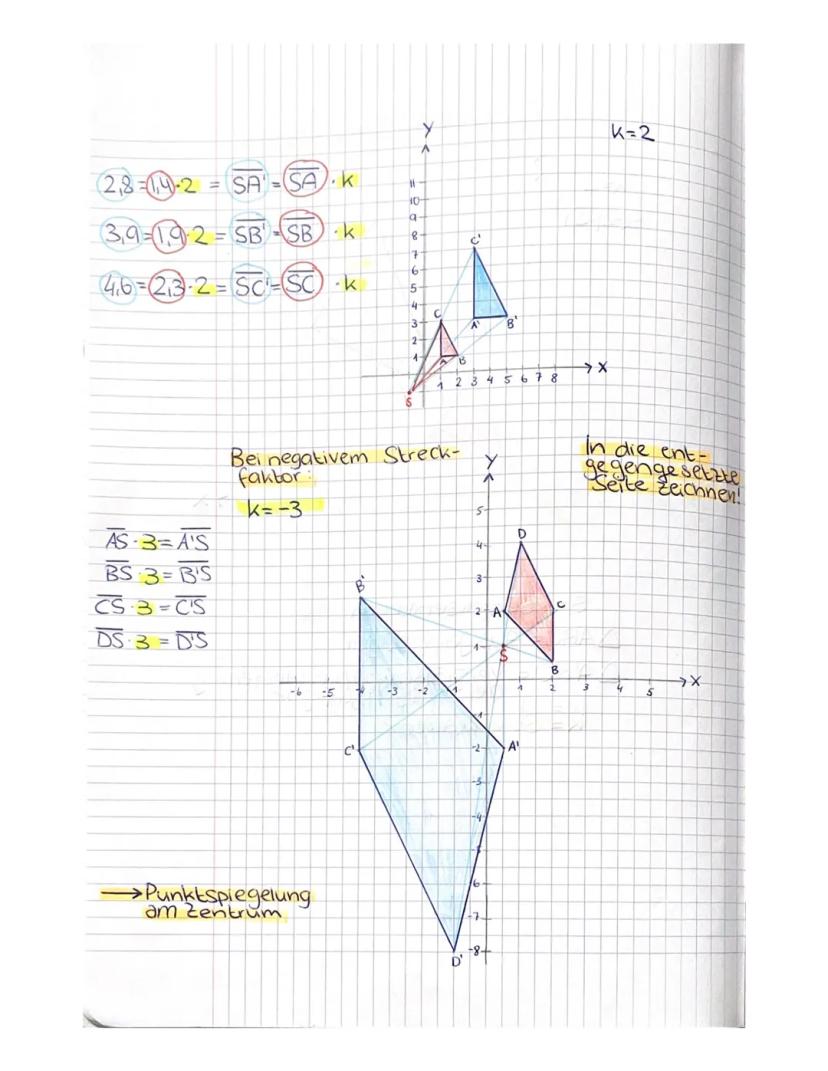 k=2
2,8=1,4·2 = SA' = SA · k
3,9=1,9·2 = SB' = SB · k
4,6=2,3·2 = SC' = SC · k
Y
11
10
9
8
7
6
5
4
3
2
1
C'
A' B'
C
A B
S
1 2 3 4 5 6 7 8
X
Bei negativem Streck-
faktor:
k=-3
In die ent-
gegengesetzte
Seite zeichnen!
AS · 3 = A'S
BS · 3 = B'S
CS · 3 = C'S
DS · 3 = D'S
Y
5
4
3
2
1
D
A C
S
B
B'
-6 -5 -4 -3 -2 -1 1 2 3 4 5
X
-1
-2
-3
-4
-5
-6
-7
-8
C' A'
D'
→ Punktspiegelung
am Zentrum